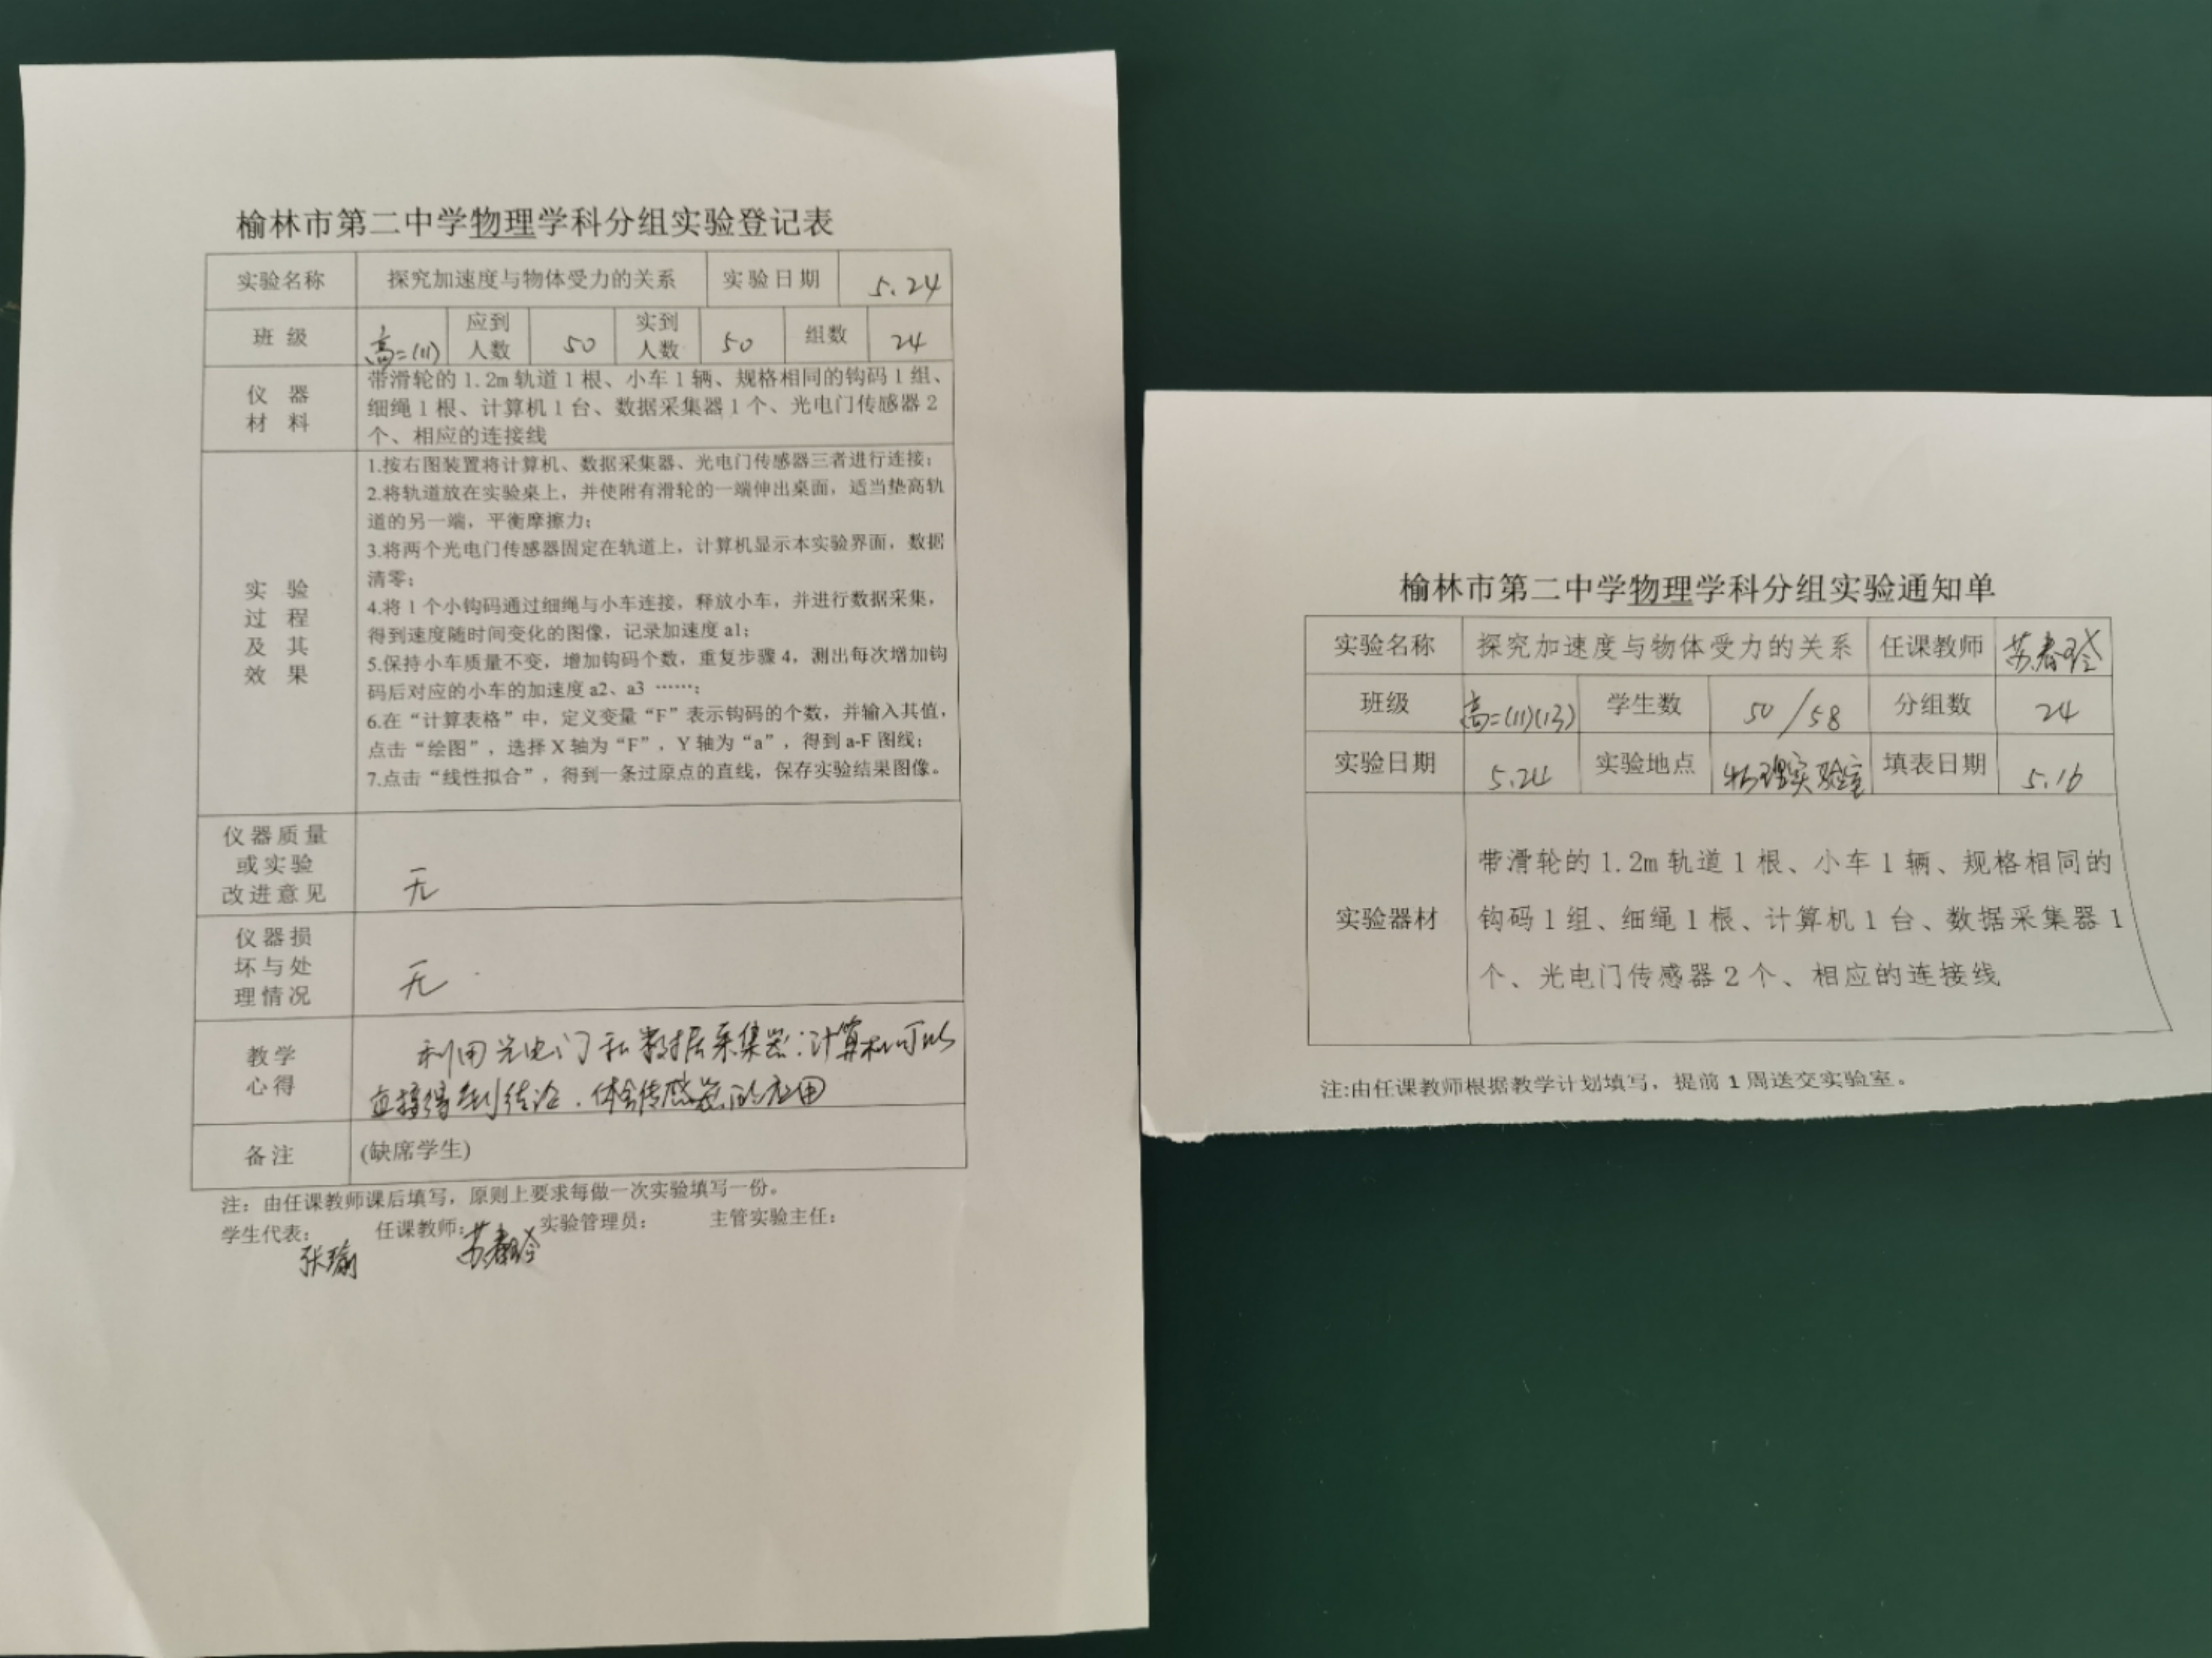 榆林市第二中学物理学科分组实验登记表
实验名称 探究加速度与物体受力的关系 实验日期 5.24
班 级 高二(11) 应到人数 50 实到人数 50 组数 24
仪 器 材 料
带滑轮的 1.2m 轨道 1 根、小车 1 辆、规格相同的钩码 1 组、
细绳 1 根、计算机 1 台、数据采集器 1 个、光电门传感器 2
个、相应的连接线
实 验
过 程
及 其
效 果
1.按右图装置将计算机、数据采集器、光电门传感器三者进行连接;
2.将轨道放在实验桌上，并使附有滑轮的一端伸出桌面，适当垫高轨
道的另一端，平衡摩擦力;
3.将两个光电门传感器固定在轨道上，计算机显示本实验界面，数据
清零;
4.将 1 个小钩码通过细绳与小车连接，释放小车，并进行数据采集，
得到速度随时间变化的图像，记录加速度 a1;
5.保持小车质量不变，增加钩码个数，重复步骤 4，测出每次增加钩
码后对应的小车的加速度 a2、a3 ……;
6.在“计算表格”中，定义变量“F”表示钩码的个数，并输入其值，
点击“绘图”，选择 X 轴为“F”，Y 轴为“a”，得到 a-F 图线;
7.点击“线性拟合”，得到一条过原点的直线，保存实验结果图像。
仪器质量
或实验
改进意见
无
仪器损
坏与处
理情况
无
教学
心得
利用光电门和数据采集器:计算机可以
直接得到结论.体会传感器的应用
备注 (缺席学生)
注：由任课教师课后填写，原则上要求每做一次实验填写一份。
学生代表: 张瑜 任课教师: 苏春玲 实验管理员: 主管实验主任:
榆林市第二中学物理学科分组实验通知单
实验名称 探究加速度与物体受力的关系 任课教师 苏春玲
班级 高二(11)(13) 学生数 50/58 分组数 24
实验日期 5.24 实验地点 物理实验室 填表日期 5.16
实验器材
带滑轮的 1.2m 轨道 1 根、小车 1 辆、规格相同的
钩码 1 组、细绳 1 根、计算机 1 台、数据采集器 1
个、光电门传感器 2 个、相应的连接线
注:由任课教师根据教学计划填写，提前 1 周送交实验室。